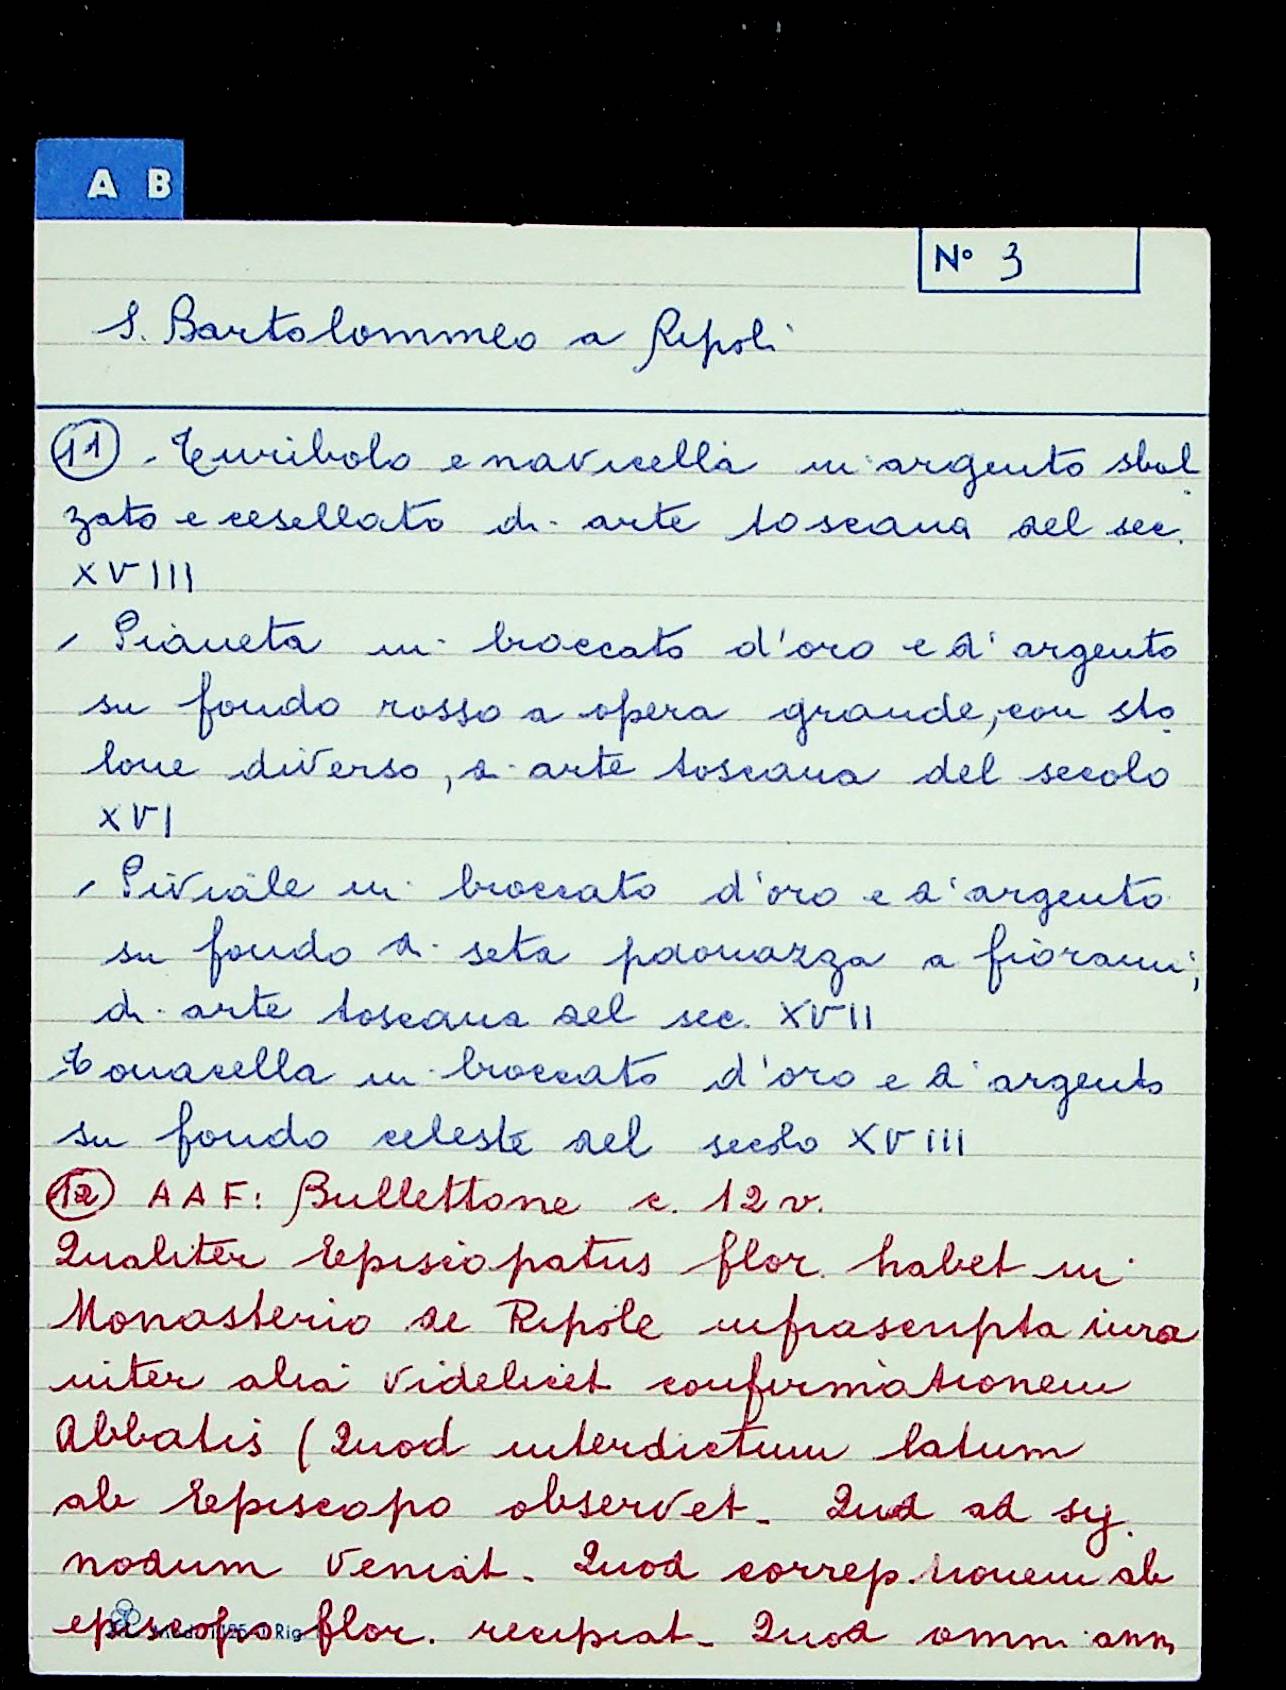 A B
N° 3
S. Bartolommeo a Ripoli
11 - Turibolo e navicella in argento sbal
zato e cesellato di arte toscana del sec.
XVIII
- Pianeta in broccato d'oro e d'argento
su fondo rosso a opera grande, con sto
lone diverso, di arte toscana del secolo
XVI
- Piviale in broccato d'oro e d'argento
su fondo di seta paonazza a fiorami,
di arte toscana del sec. XVII
Tonacella in broccato d'oro e d'argento
su fondo celeste del secolo XVIII
12 AAF: Bullettone c. 12 v.
Qualiter Episcopatus flor. habet in
Monasterio de Ripole infrascripta iura
inter alia videlicet confirmationem
Abbatis (Quod interdictum latum
ab Episcopo observet - Quod ad sy.
nodum veniat - Quod correp.tionem ab
episcopo flor. recipiat - Quod omni ann